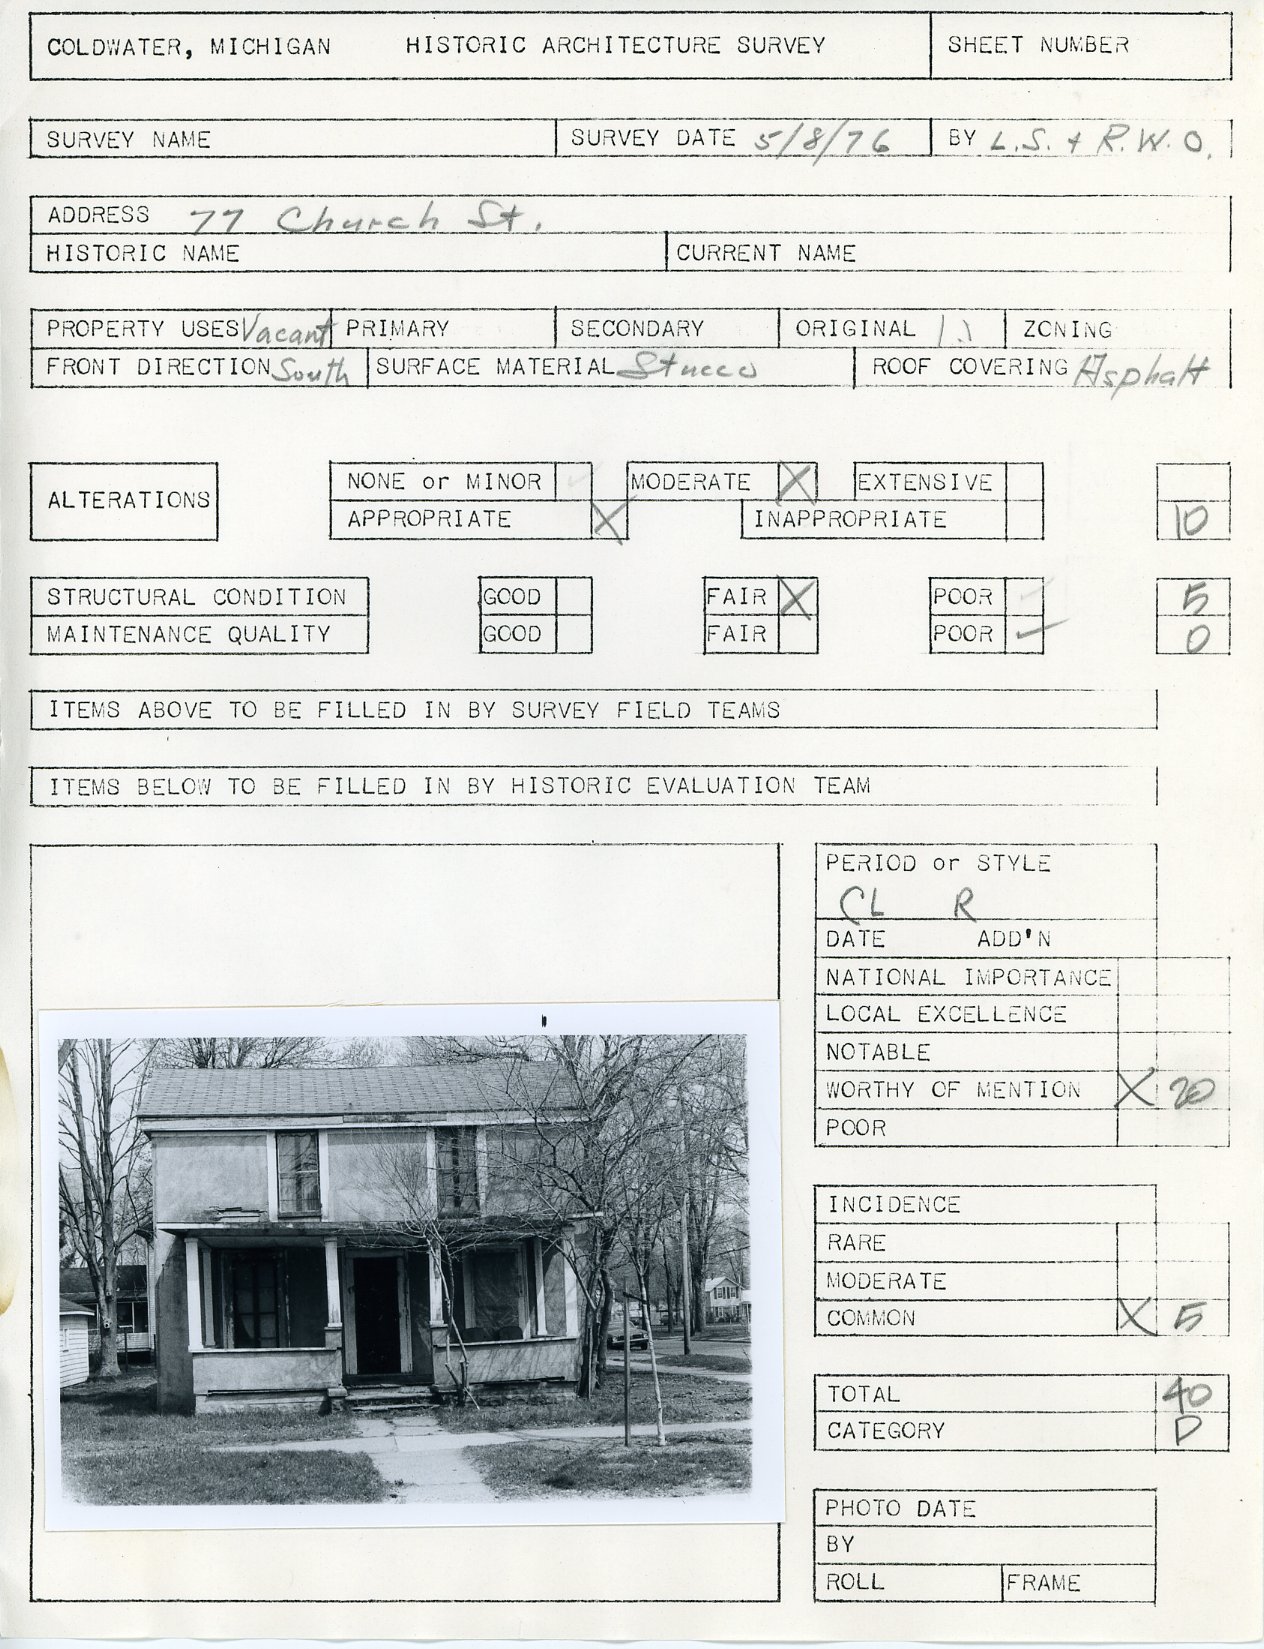 COLDWATER, MICHIGAN HISTORIC ARCHITECTURE SURVEY SHEET NUMBER
SURVEY NAME SURVEY DATE 5/8/76 BY L.S. + R.W.O.
ADDRESS 77 Church St.
HISTORIC NAME CURRENT NAME
PROPERTY USES Vacant PRIMARY SECONDARY ORIGINAL ZONING
FRONT DIRECTION South SURFACE MATERIAL Stucco ROOF COVERING Asphalt
ALTERATIONS
NONE or MINOR MODERATE X EXTENSIVE
APPROPRIATE X INAPPROPRIATE 10
STRUCTURAL CONDITION GOOD FAIR X POOR 5
MAINTENANCE QUALITY GOOD FAIR POOR ✓ 0
ITEMS ABOVE TO BE FILLED IN BY SURVEY FIELD TEAMS
ITEMS BELOW TO BE FILLED IN BY HISTORIC EVALUATION TEAM
PERIOD or STYLE
CL R
DATE ADD'N
NATIONAL IMPORTANCE
LOCAL EXCELLENCE
NOTABLE
WORTHY OF MENTION X 20
POOR
INCIDENCE
RARE
MODERATE
COMMON X 5
TOTAL 40
CATEGORY D
PHOTO DATE
BY
ROLL FRAME